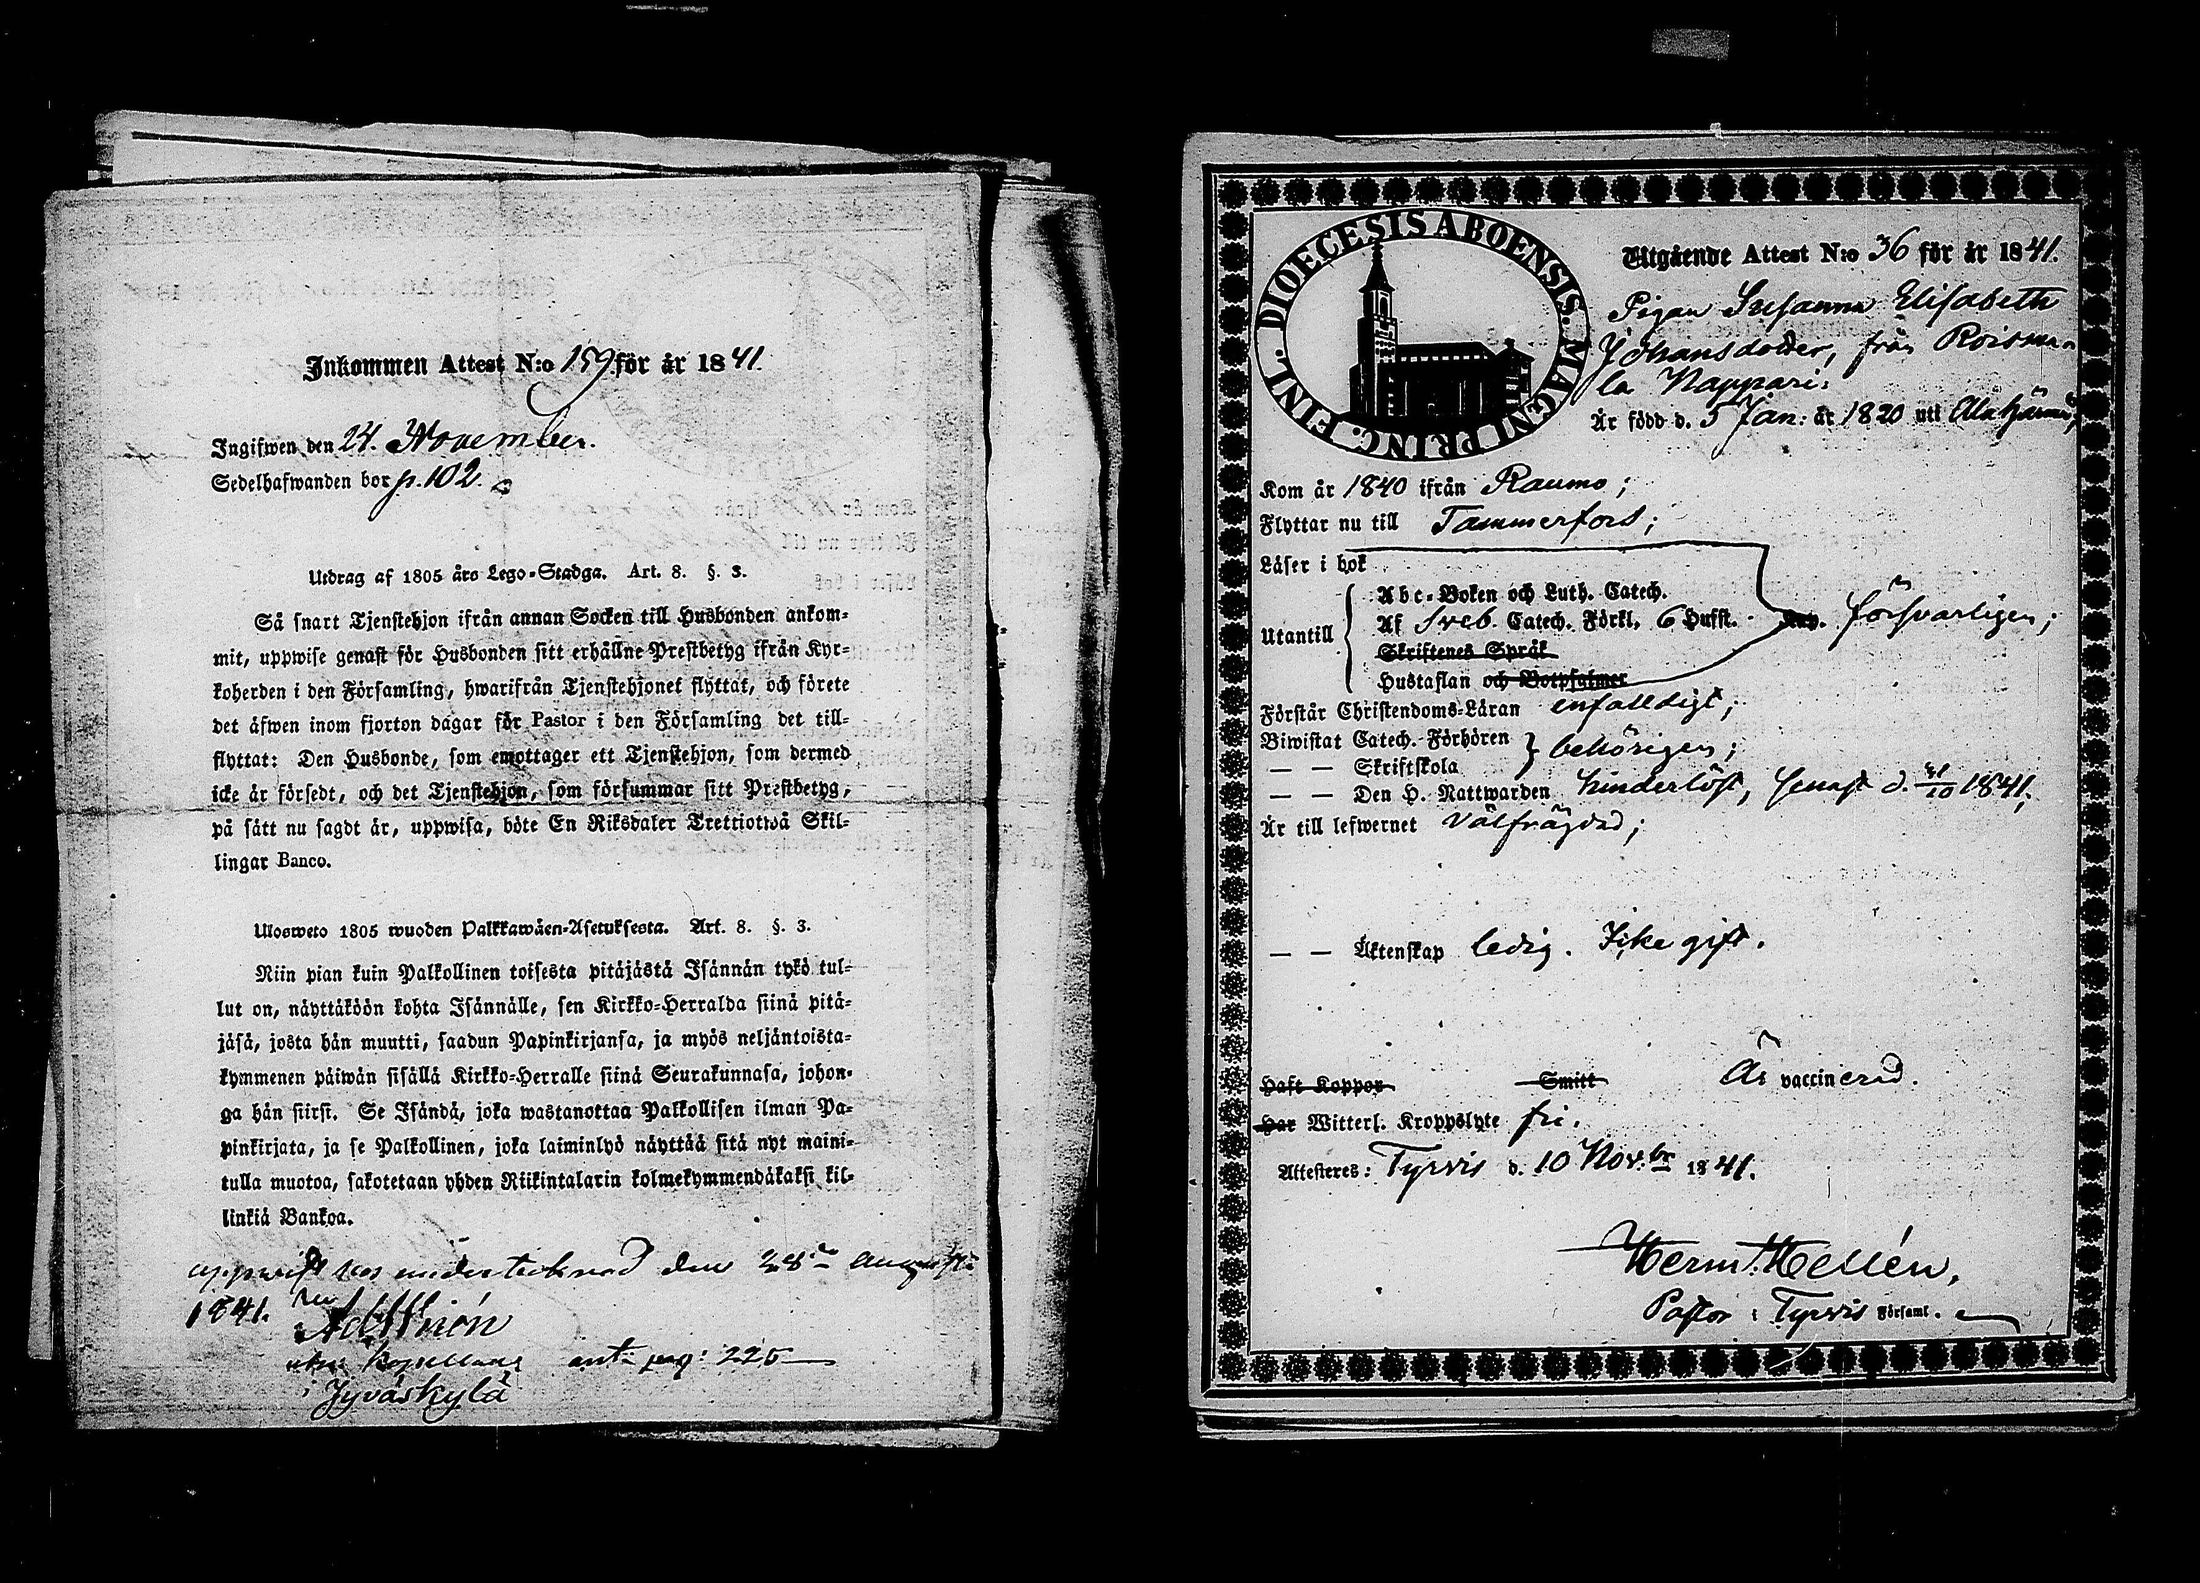 Inkommen Attest N:o 159 för år 1841.
Ingifwen den 24. November.
Sedelhafwanden bor p. 102.
Utdrag af 1805 års Lego-Stadga. Art. 8. §. 3.
Så snart Tjenstehjon ifrån annan Socken till Husbonden ankom-
mit, uppwise genast för Husbonden sitt erhållne Prestbetyg ifrån Kyr-
koherden i den Församling, hwarifrån Tjenstehjonet flyttat, och förete
det äfwen inom fjorton dagar för Pastor i den Församling det till-
flyttat: Den Husbonde, som emottager ett Tjenstehjon, som dermed
icke är försedt, och det Tjenstehjon, som försummar sitt Prestbetyg,
på sätt nu sagdt är, uppwisa, böte En Riksdaler Trettiotwå Skil-
lingar Banco.
Ulosweto 1805 wuoden Palkkawäen-Asetuksesta. Art. 8. §. 3.
Niin pian kuin Palkollinen toisesta pitäjästä Isännän tykö tul-
lut on, näyttäköön kohta Isännälle, sen Kirkko-Herralda siinä pitä-
jäsä, josta hän muutti, saadun Papinkirjansa, ja myös neljäntoista-
kymmenen päiwän sisällä Kirkko-Herralle siinä Seurakunnasa, johon-
ga hän siirsi. Se Isändä, joka wastanottaa Palkollisen ilman Pa-
pinkirjata, ja se Palkollinen, joka laiminlyö näyttää sitä nyt maini-
tulla muotoa, sakotetaan yhden Riikintalarin kolmekymmendäkaksi kil-
linkiä Bankoa.
uppwist hos undertecknad den 28de Augusti
1841.
Kapellans ant. pag: 225
i Jyväskylä
DIOECESIS ABOENSIS. MAGNI PRINC. FINL.
Utgående Attest N:o 36 för år 1841.
Pigan Susanna Elisabeth
Johansdotter, från Roisma-
la Nappari:
Är född d. 5 Jan: år 1820 uti Alahärmä,
Kom år 1840 ifrån Raumo;
Flyttar nu till Tammerfors;
Läser i bok
Abc-Boken och Luth. Catech.
Utantill Af Sveb. Catech. Förkl. 6 Hufst. försvarligen;
Skriftenes Språk
Hustaflan och Botpsalmer
Förstår Christendoms-Läran enfalldigt;
Biwistat Catech. Förhören behörigen;
— — Skriftskola
— — Den H. Nattwarden hinderlöst, senast d. 31/10 1841;
Är till lefwernet välfrägdad;
— — Äktenskap ledig. Icke gift.
Haft Koppor Smitt Är vaccinerad.
Har Witterl. Kroppslyte fri.
Attesteres: Tyrvis d. 10 Nov:br 1841.
Herm. Hellén,
Pastor i Tyrvis Församl.